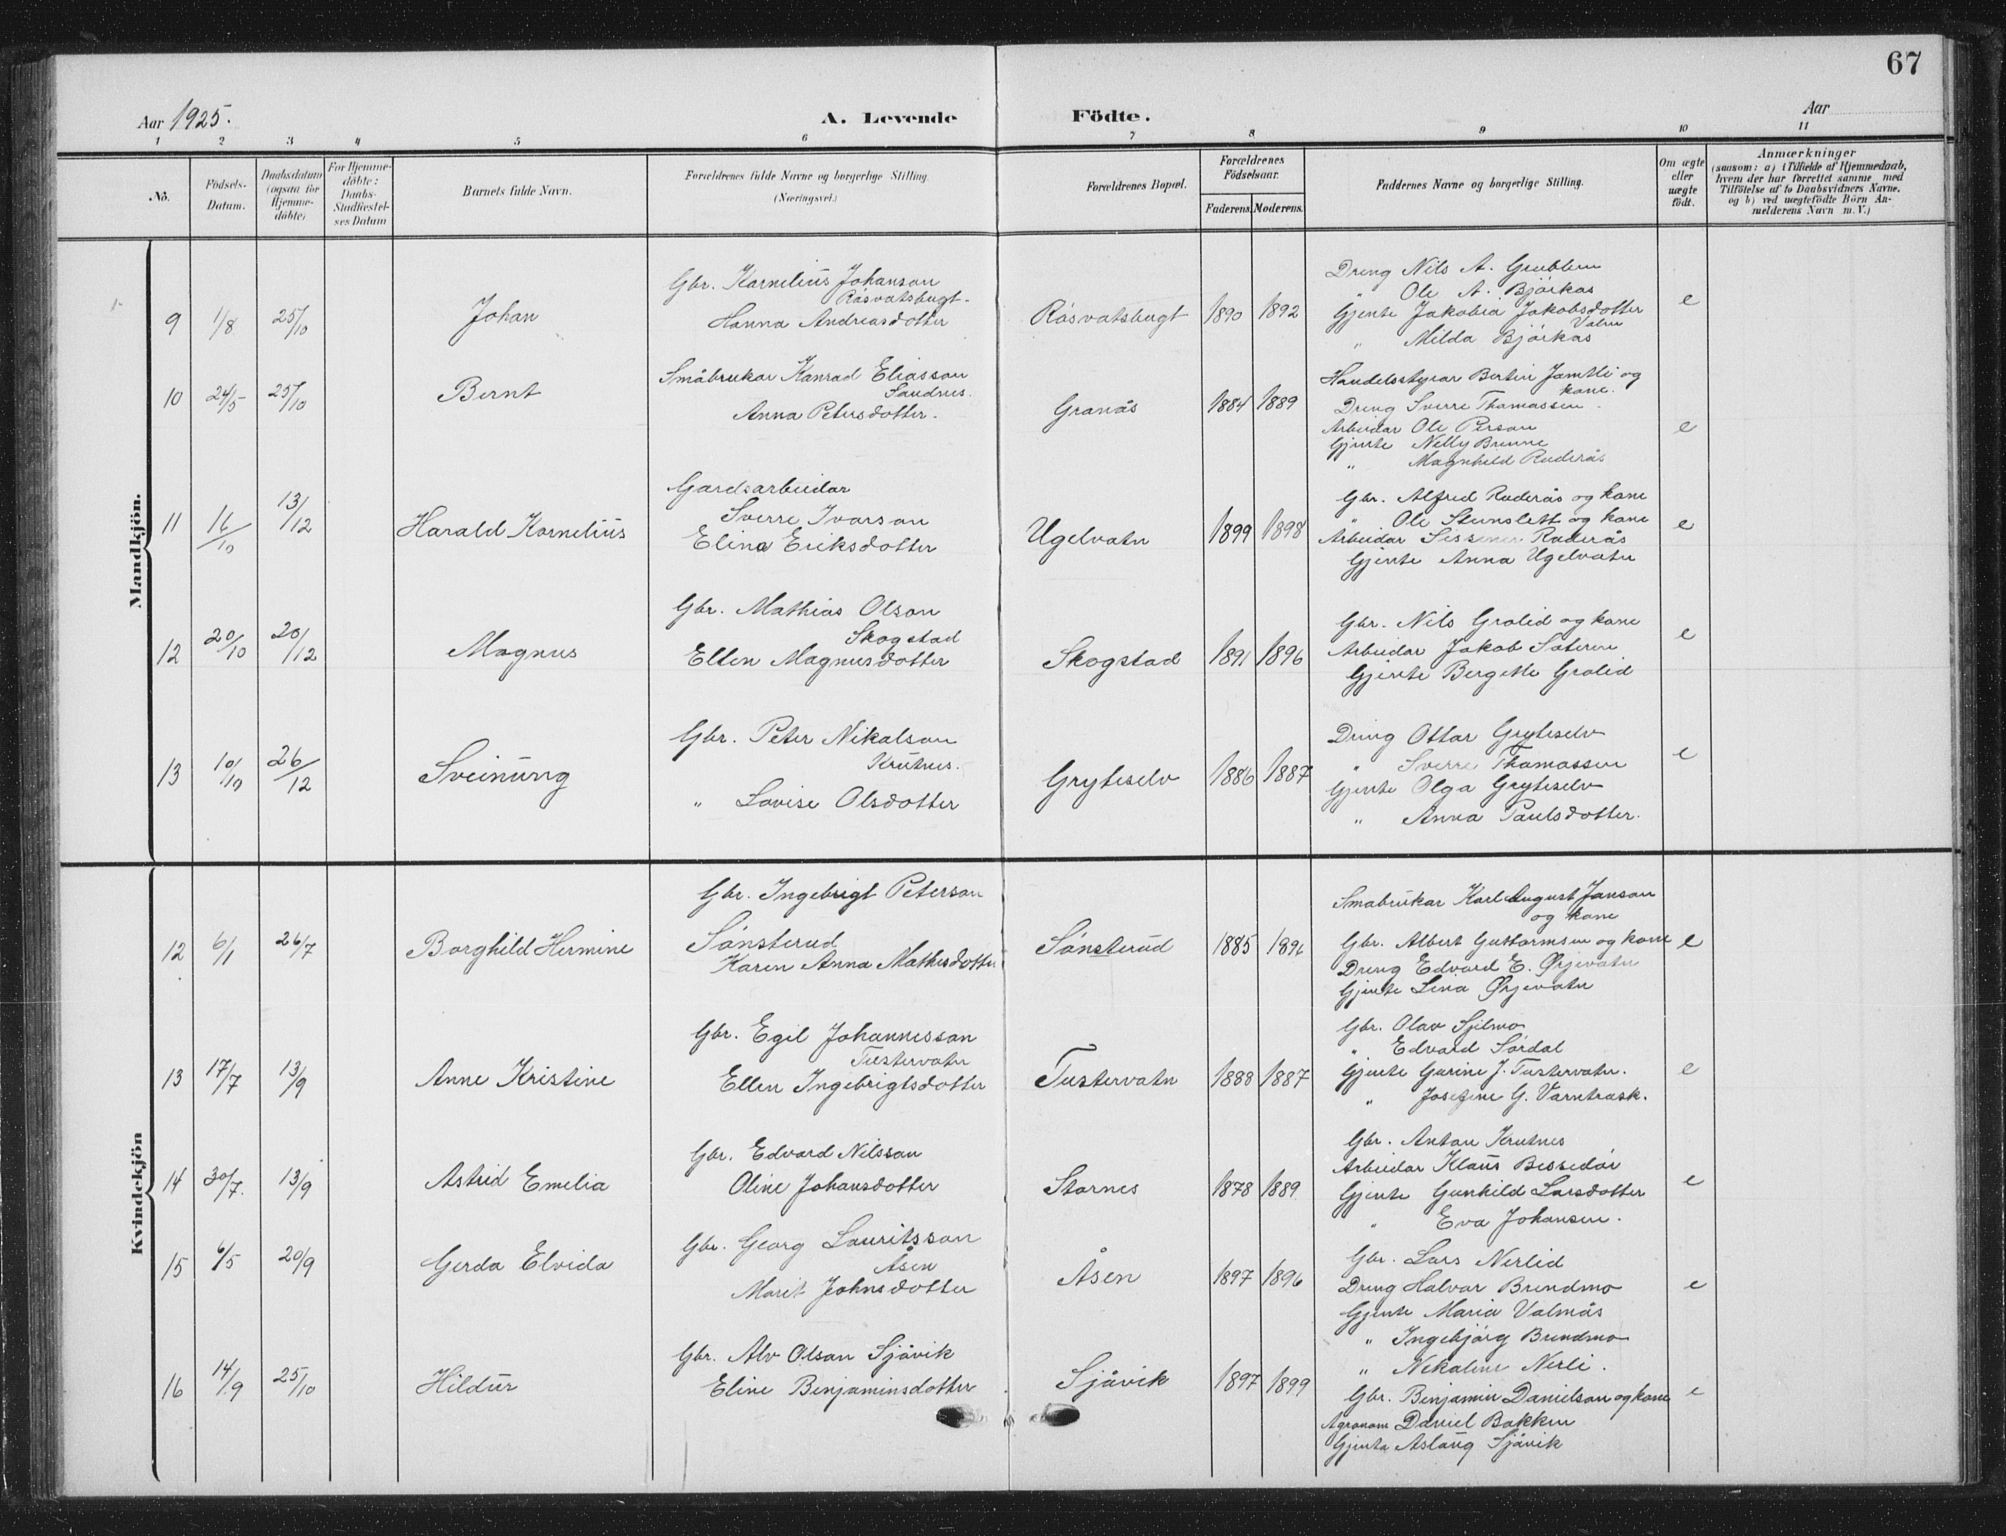 67
Aar 1925.
A. Levende Födte.
Aar
1 2 3 4 5 6 7 8 9 10 11
No.
Födsels-Datum.
Daabsdatum (ogsaa for Hjemme-döbte)
For Hjemme-döbte: Daabs-Stadfæstel-ses Datum
Barnets fulde Navn.
Forældrenes fulde Navne og borgerlige Stilling.
(Næringsvei.)
Forældrenes Bopæl.
Forældrenes Födselsaar.
Faderens. Moderens.
Faddernes Navne og borgerlige Stilling.
Om ægte eller uægte födt.
Anmærkninger
(saasom: a) i Tilfælde af Hjemmedaab,
hvem der har forrettet samme med
Tilföielse af to Daabsvidners Navne.
og b) ved uægtefödte Börn An-
melderens Navn m. V.)
Mandkjön.
9 1/8 25/10 Johan
Gbr. Kornelius Johanson
Røsvatsbugt.
Hanna Andreasdotter
Røsvatsbugt 1890 1892
Dreng Nils A. Grublen
" Ole A. Bjørkås
Gjente Jakobia Jakobsdotter
" Milda Bjørkås
e
10 24/5 25/10 Bernt
Småbrukar Konrad Eliasson
Sandnes.
Anna Petersdotter.
Granås 1884 1889
Handelsstyrar Bertin Jamtli og
kone.
Dreng Sverre Thomassen.
Arbeidar Ole Person
Gjente Nelly Brenne
" Magnhild Ruderås
e
11 16/10 13/12 Harald Kornelius
Gardsarbeidar
Sverre Ivarson
Elina Eriksdotter
Ugelvatn 1899 1898
Gbr. Alfred Ruderås og kone
" Ole Stenslett og kone
Arbeidar Ruderås
Gjente Anna Ugelvatn
e
12 20/10 20/12 Magnus
Gbr. Mathias Olson
Skogstad
Ellen Magnusdotter
Skogstad 1891 1896
Gbr. Nils Grolid og kone
Arbeidar Jakob Søteren
Gjente Bergitte Grolid
e
13 10/10 26/12 Sveinung
Gbr. Peter Nikolson
Krutnes.
" Lovise Olsdotter
Gryteselv 1886 1887
Dreng Ottar Gryteselv
" Sverre Thomassen
Gjente Olga Gryteselv
" Anna Paulsdotter.
e
Kvindekjön
12 6/1 26/7 Borghild Hermine
Gbr. Ingebrigt Peterson
Sønsterud
Karen Anna Mathisdotter
Sønsterud 1885 1896
Småbrukar Karl August Janson
og kone
Gbr. Albert Guttormsen og kone
Dreng Edvard E. Ørjevatn
Gjente Lina Ørjevatn
e
13 17/7 13/9 Anne Kristine
Gbr. Egil Johannesson
Tustervatn
Ellen Ingebrigtsdotter
Tustervatn 1888 1887
Gbr. Olav Sjilmo
" Edvard Sørdal
Gjente Garine J. Tustervatn.
" Josefine G. Varntræsk.
e
14 30/7. 13/9 Astrid Emelia
Gbr. Edvard Nilsson
Oline Johansdotter
Stornes 1878 1889
Gbr. Anton Krutnes
Arbeidar Klaus Bessedør
Gjente Gunhild Larsdotter
" Eva Johansen.
e
15 6/5 20/9 Gerda Elvida
Gbr. Georg Lauritsson
Åsen
Marit Johnsdotter
Åsen 1897 1896
Gbr. Lars Nerlid
Dreng Halvar Brendmo
Gjente Maria Valmås
" Ingebjørg Brendmo
" Nikoline Nerli.
e
16 14/9 25/10 Hildur
Gbr. Alv Olson Sjåvik
Eline Benjaminsdotter
Sjåvik 1897 1899
Gbr. Benjamin Danielson og kone
Agronom Daniel Bakken
Gjenta Aslaug Sjåvik
e